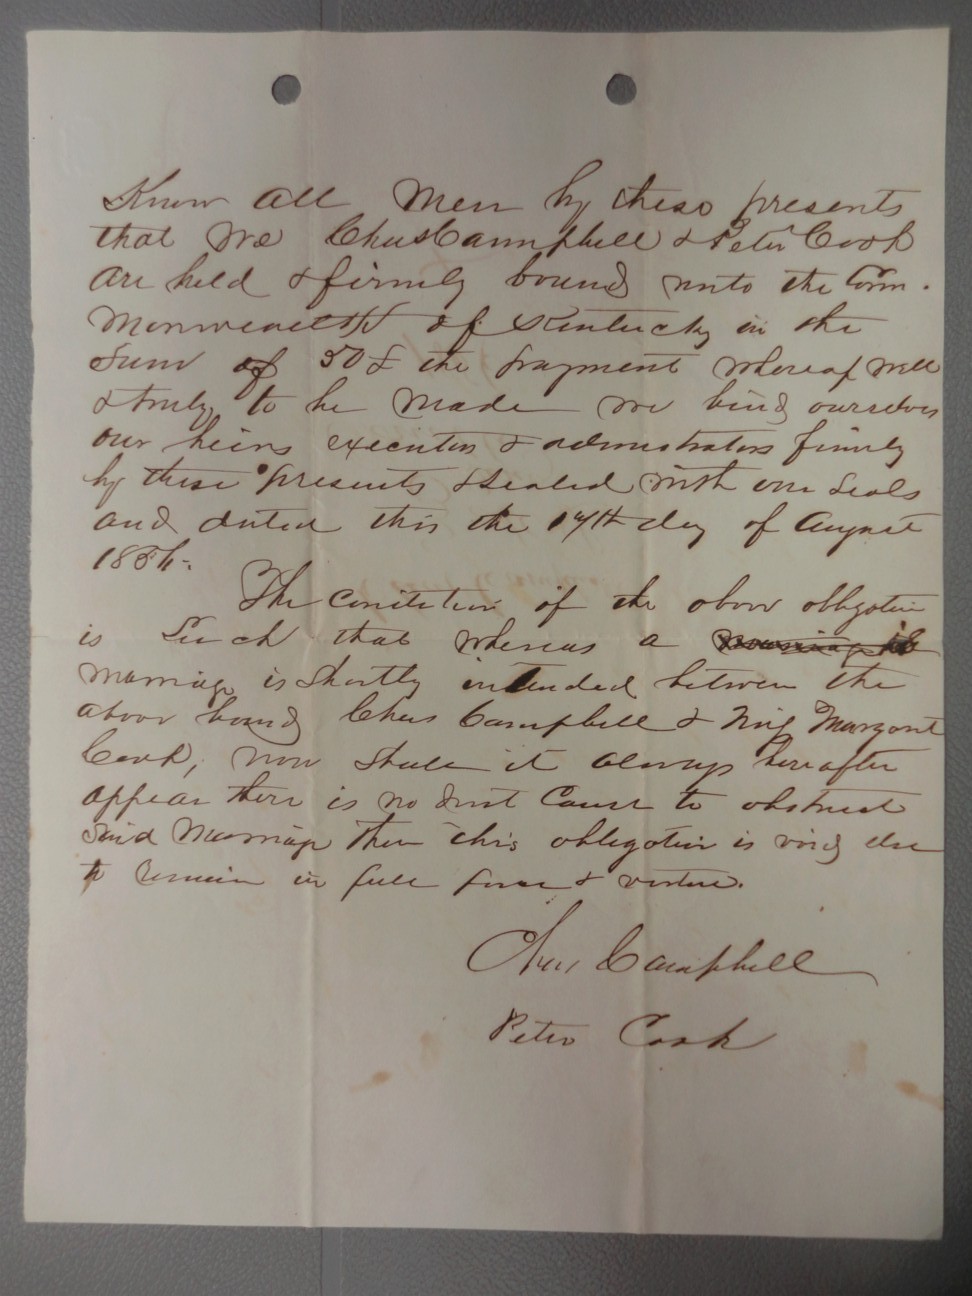 Know all Men by these presents
that We Chas Campbell & Peter Cook
are held & firmly bound unto the Com-
monwealth of Kentucky in the
Sum of 50£ the payment whereof well
& truly to be made we bind ourselves
our heirs executors & administrators firmly
by these presents & sealed with our seals
and dated this the 17th day of August
The condition of the above obligation
is Such that whereas a
marriage is shortly intended between the
above bound Chas Campbell & Miss Margaret
Cook, now shall it always hereafter
appear there is no just cause to obstruct
said Marriage then this obligation is void else
to remain in full force & virtue.
Chas Campbell
Peter Cook